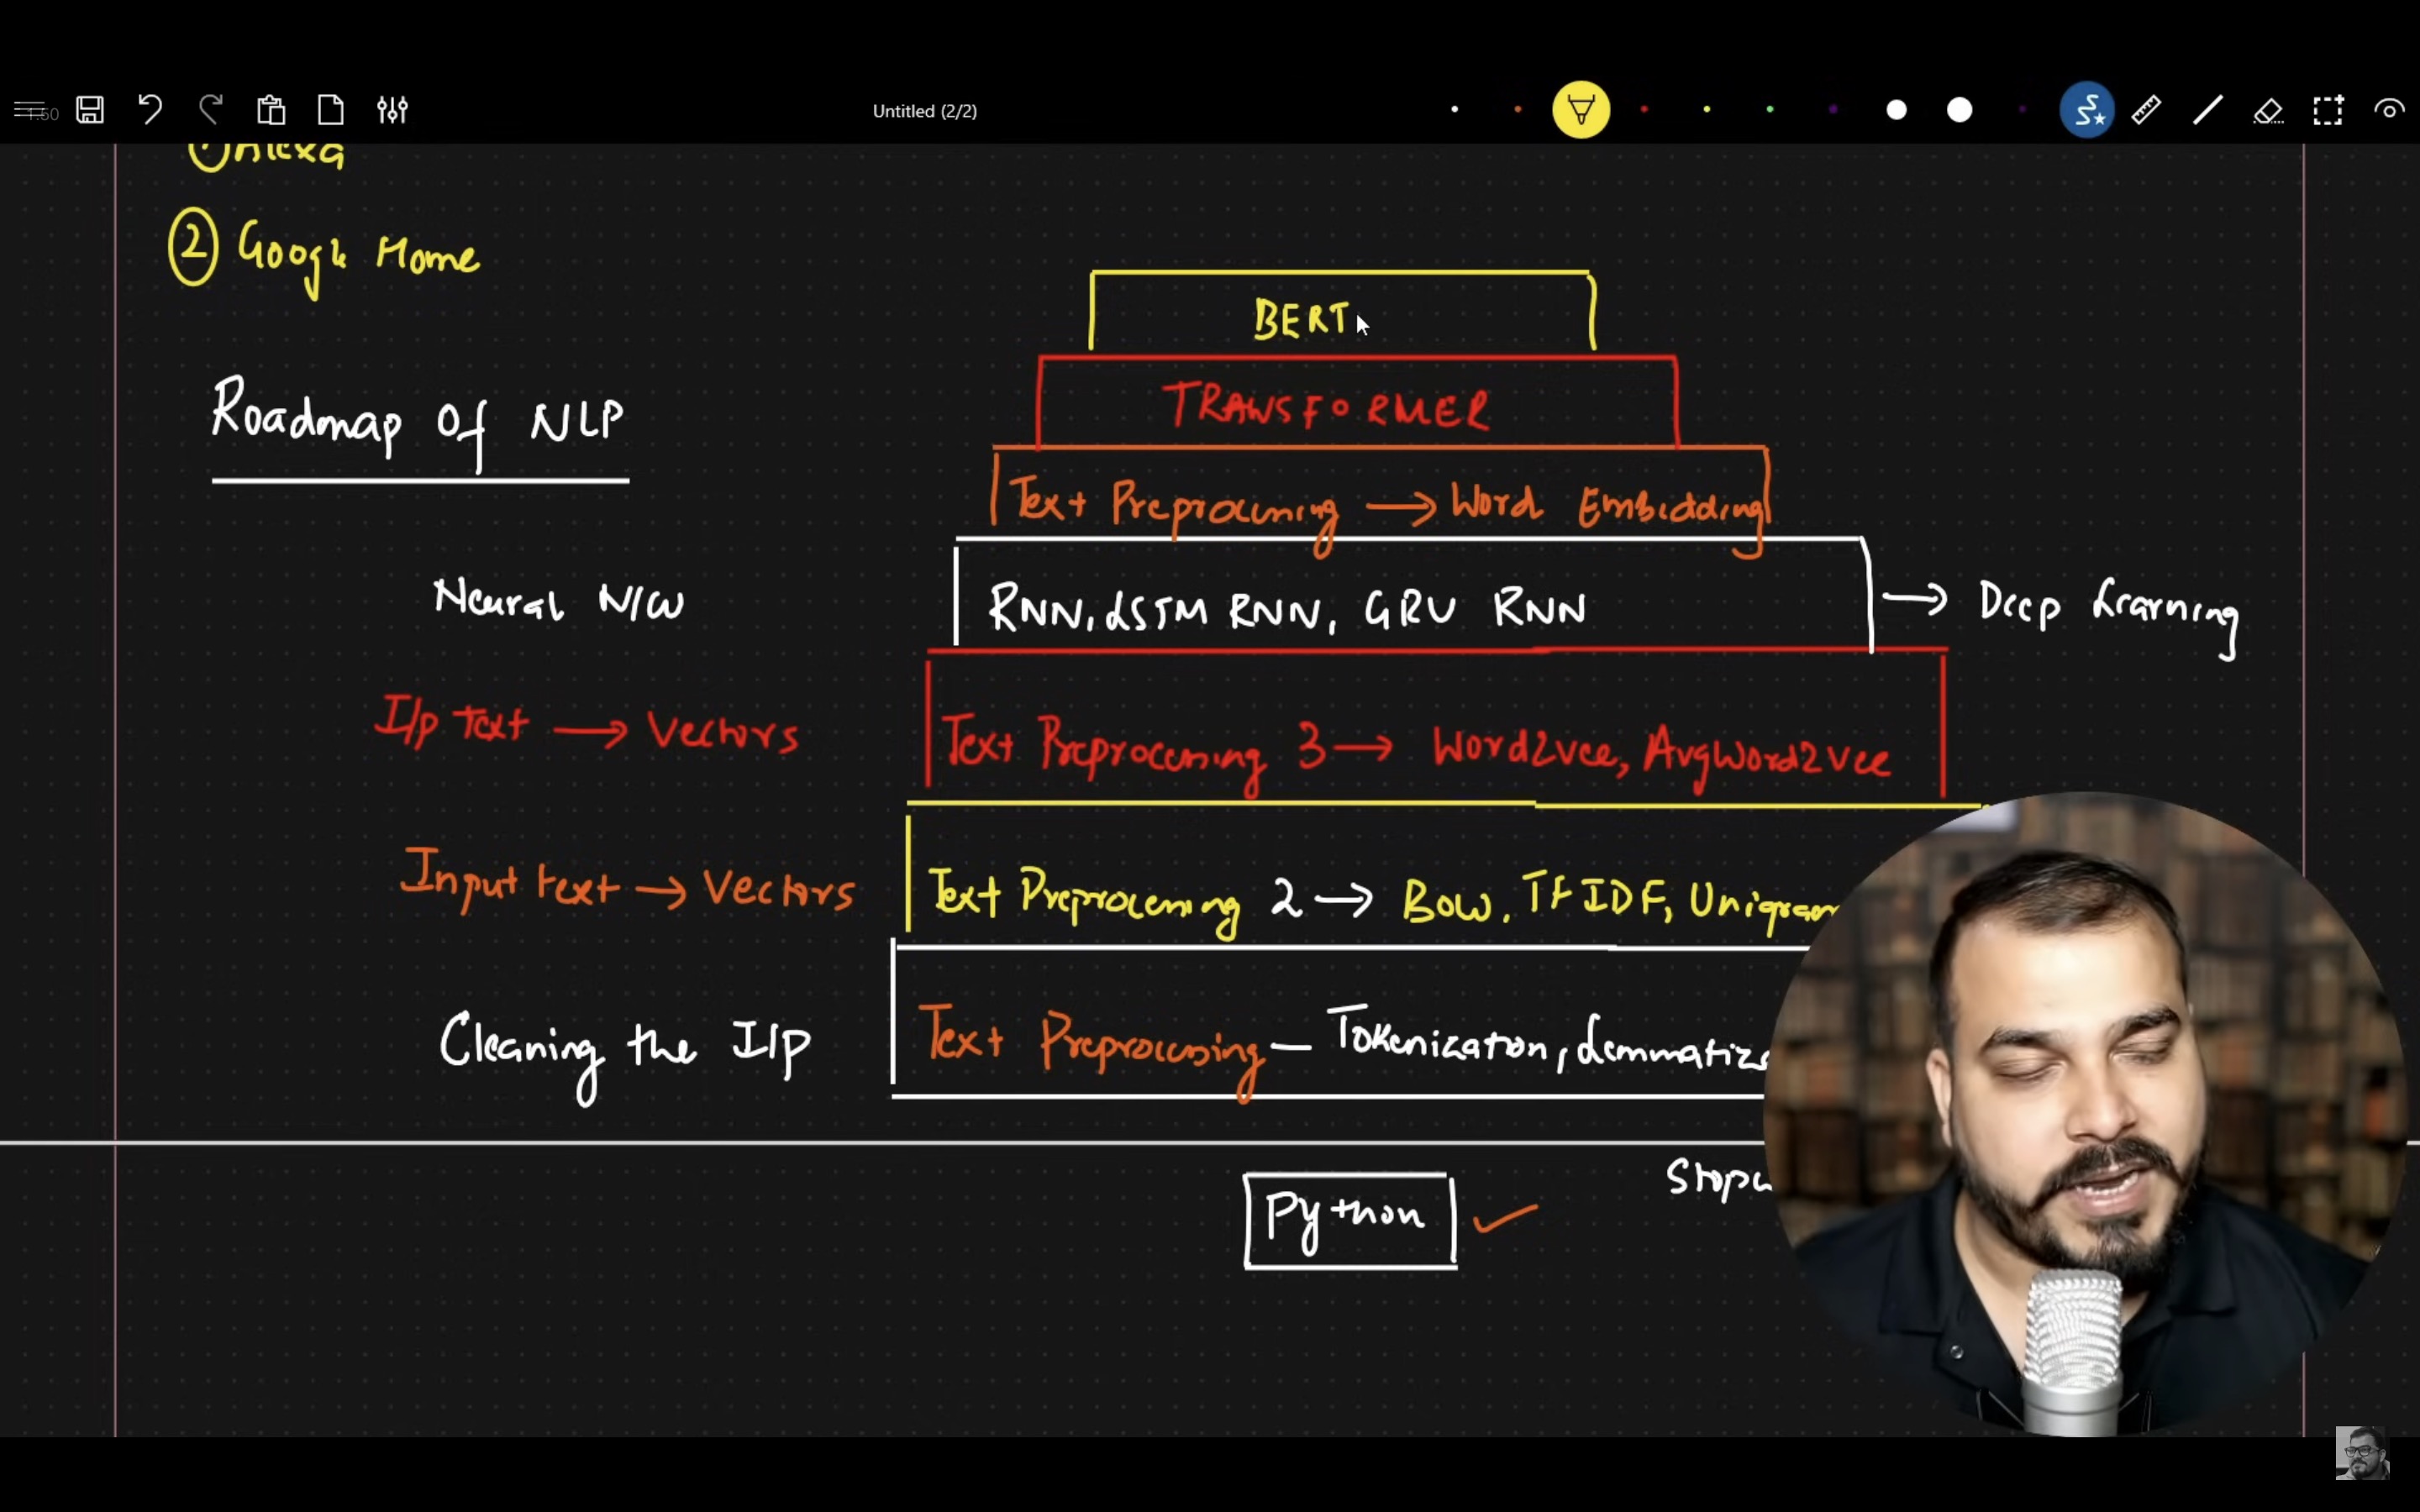 Untitled (2/2)
1.50
① Alexa
② Google Home
BERT
Roadmap Of NLP
TRANSFORMER
Text Preprocessing → Word Embedding
Neural N/W
RNN, LSTM RNN, GRU RNN → Deep Learning
I/p Text → Vectors
Text Preprocessing 3 → Word2vec, AvgWord2vec
Input text → Vectors
Text Preprocessing 2 → BOW, TFIDF, Unigram
Cleaning the I/p
Text Preprocessing — Tokenization, Lemmatiza
Stopw
Python ✓